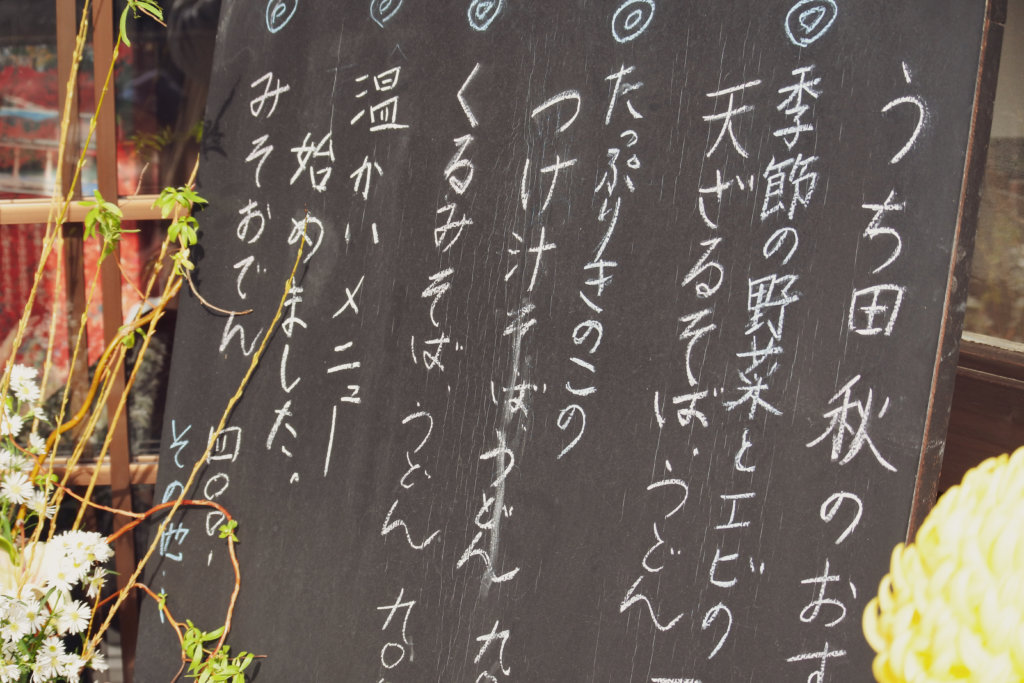 うち田 秋のおす
◎季節の野菜とエビの
天ざるそば、うどん
◎たっぷりきのこの
つけ汁そば、うどん 九〇
◎くるみそば、うどん 九〇
◎温かいメニュー
始めました。
◎みそおでん 四〇〇、
その他、